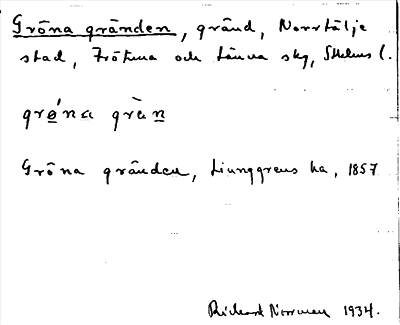 Gröna gränden, gränd, Norrtälje
stad, Frötuna och Länna skg, Sthlms l.
grǿna gràn
Gröna gränden, Ljunggrens ka, 1857
Richard Norrman 1934.